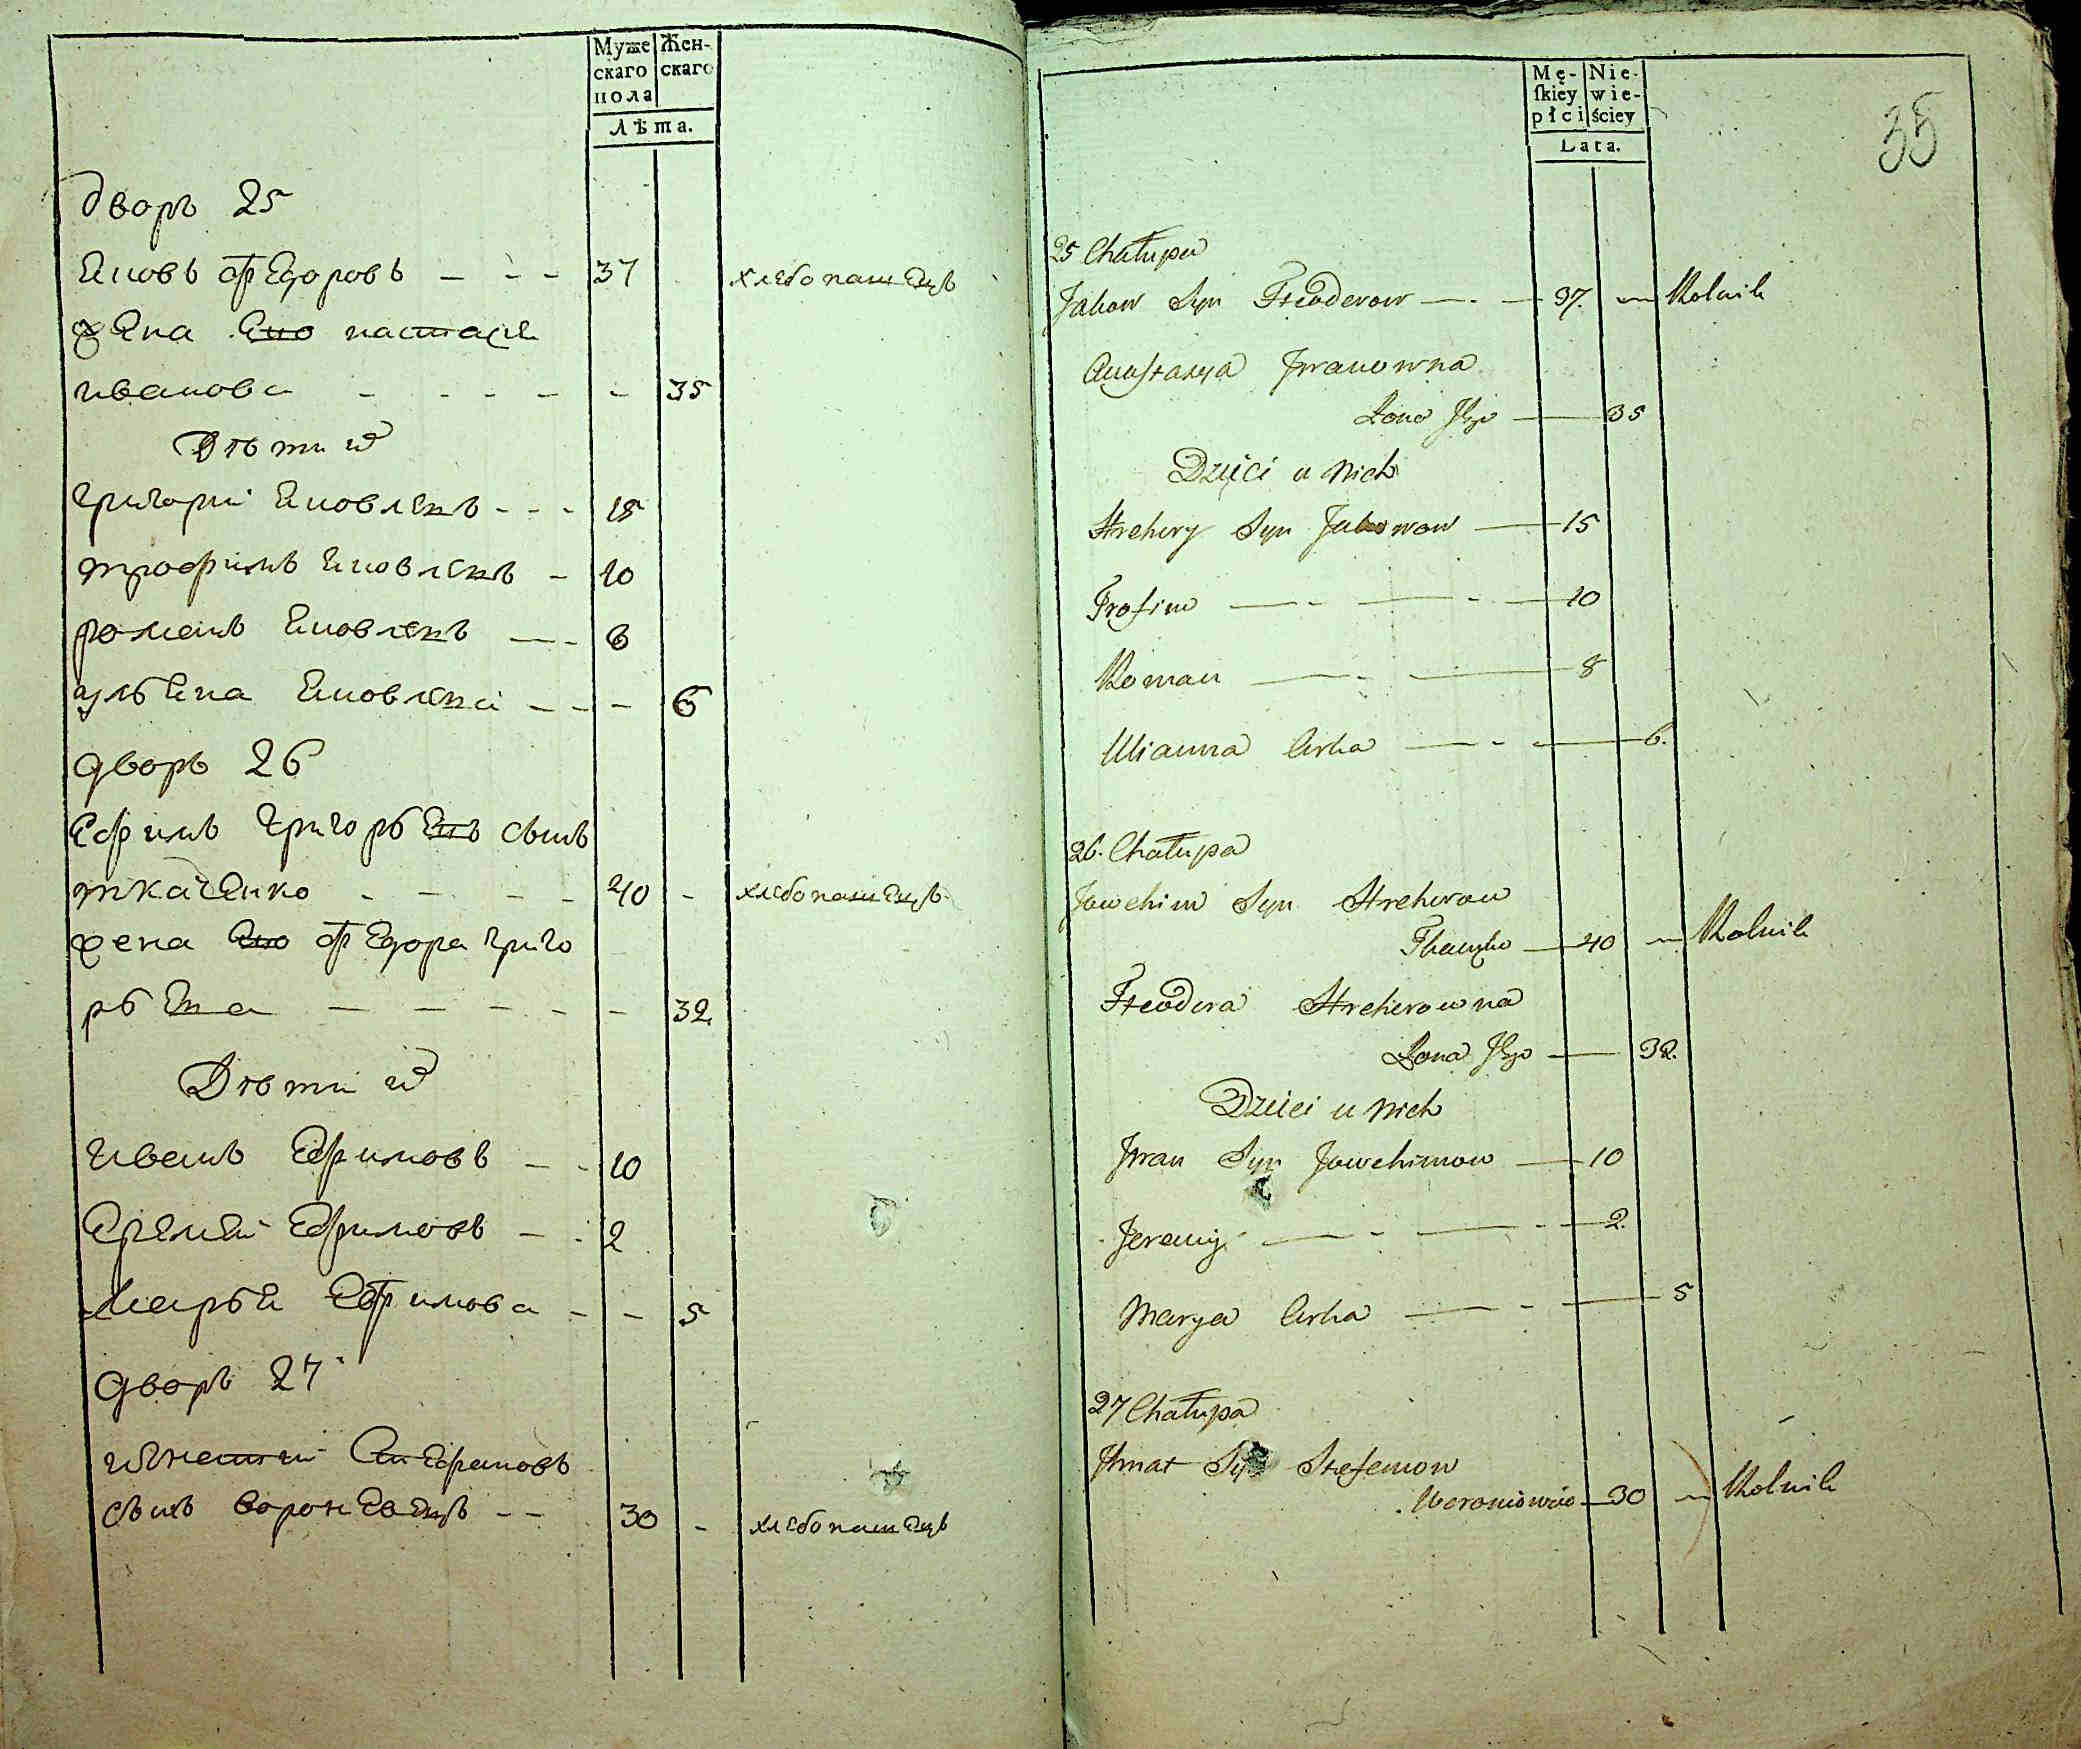 Муже Жен-
скаго скаго
пола
Лѣта.
дворъ 25
Яковъ Федоровъ - - - 37 хлебопашецъ
жена Его настасія
иванова - - - - - 35
Дѣти их
григорий Яковлевъ - - - 15
трофимъ Яковлевъ - 10
романъ Яковлевъ - - 8
ульяна Яковлева - - - 6
дворъ 26
Ефимъ григорьевъ сынъ
ткаченко - - - - 40 - хлебопашецъ
жена Его Федора григо
рьева - - - - - - 32
Дѣти их
иванъ Ефимовъ - - 10
Еремей Ефимовъ - - 2
Марья Ефимова - - 5
дворъ 27
игнатий Стефановъ
сынъ воронёвецъ - - 30 - хлебопашецъ
35
Mę- Nie-
skiey wie-
płci ściey
Lata.
25 Chałupa
Jakow Syn Fteoderow - 37. Rolnik
Anastazya Jwanowna
Żona Jego - 35
Dzieci u nich
Hrehory Syn Jakowow - 15
Trofim - 10
Roman - 8
Ulianna Curka - 6.
26. Chałupa
Jowchim Syn Hrehorow
Tkaczko - 40 Rolnik
Fteodora Hrehorowna
Żona Jego - 32.
Dzieci u nich
Jwan Syn Jowchimow - 10
Jeremij - 2.
Marya Curka - 5
27 Chałupa
Jhnat Syn Stefanow
30 Rolnik